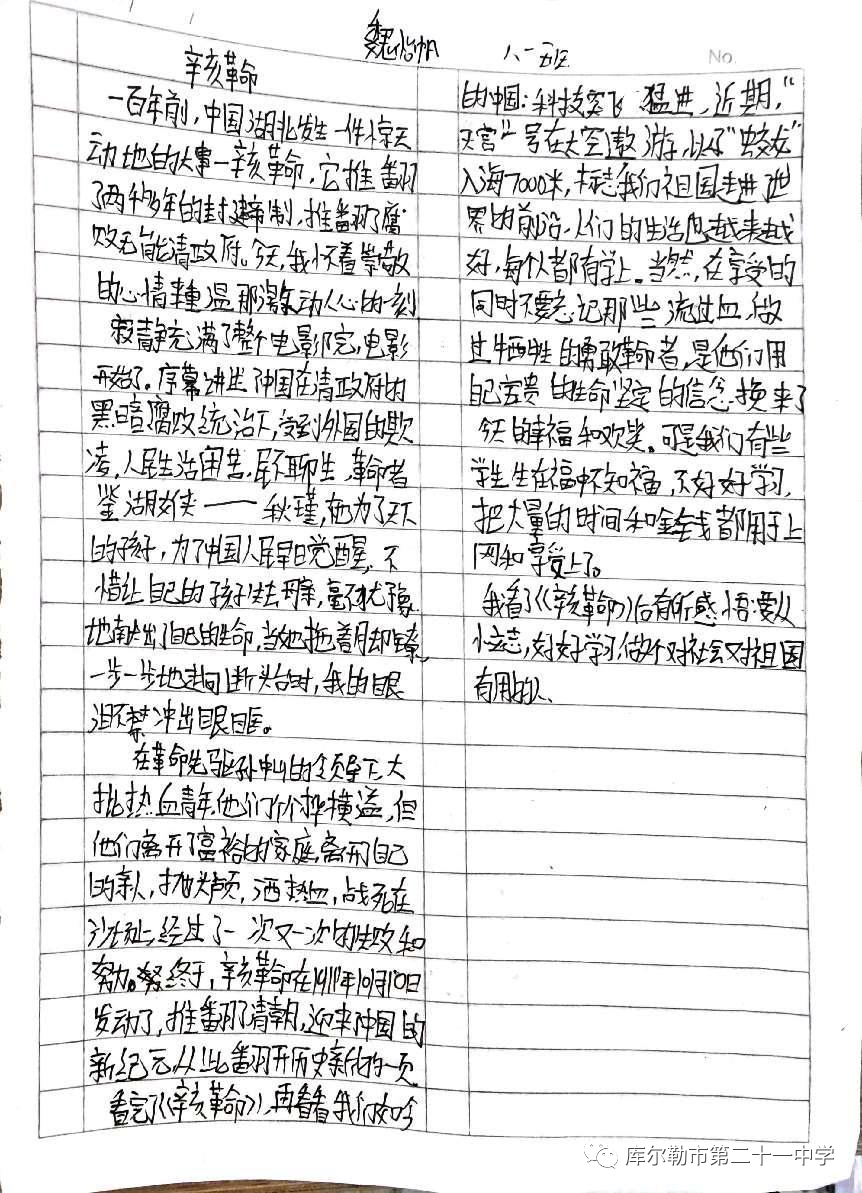 魏怡帆 八一班 No.
辛亥革命
一百年前，中国湖北发生一件惊天
动地的大事—辛亥革命，它推翻
了两千多年的封建帝制，推翻了腐
败无能清政府。今天，我怀着崇敬
的心情重温那激动人心的一刻
寂静充满了整个电影院，电影
开始了。序幕讲述了中国在清政府的
黑暗腐败统治下，受到外国的欺
凌，人民生活困苦，民不聊生，革命者
鉴湖女侠——秋瑾，她为了天下
的孩子，为了中国人民早日觉醒，不
惜让自己的孩子失去母亲，毫不犹豫
地献出了自己的生命，当她拖着脚镣，
一步一步地走向断头台时，我的眼
泪不禁冲出眼眶。
在革命先驱孙中山的领导下，大
批热血青年，他们个个才华横溢，但
他们离开了富裕的家庭，离开自己
的亲人，抛头颅，洒热血，战死在
沙场上，经过了一次又一次的失败和
努力。终于，辛亥革命在1911年10月10日
发动了，推翻了清朝，迎来中国的
新纪元从此翻开历史新的一页
看完了《辛亥革命》，再看看我们如今
的中国：科技突飞猛进，近期，“
天宫”一号在太空遨游，以及“蛟龙”
入海7000米，标志我们祖国走进了世
界的前沿，人们的生活也越来越
好，每个人都有学上。当然，在享受的
同时不要忘记那些流过血，做
过牺牲的勇敢革命者，是他们用
自己宝贵的生命坚定的信念换来了
今天的幸福和欢笑。可是我们有些
学生生在福中不知福，不好好学习，
把大量的时间和金钱都用于上
网和享受上了。
我看了《辛亥革命》后有所感悟：要从
小立志，好好学习，做个对社会对祖国
有用的人、
库尔勒市第二十一中学